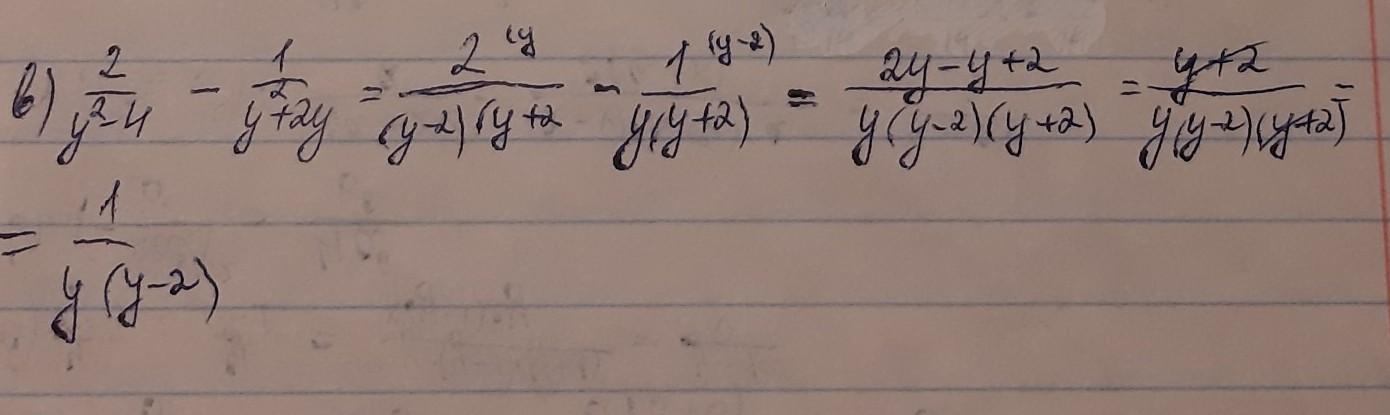 в) 2/(y²-4) - 1/(y²+2y) = 2^(y/(y-2)(y+2 - 1^(y-2)/y(y+2) = (2y-y+2)/(y(y-2)(y+2)) = (y+2)/(y(y-2)(y+2)) =
= 1/(y(y-2))